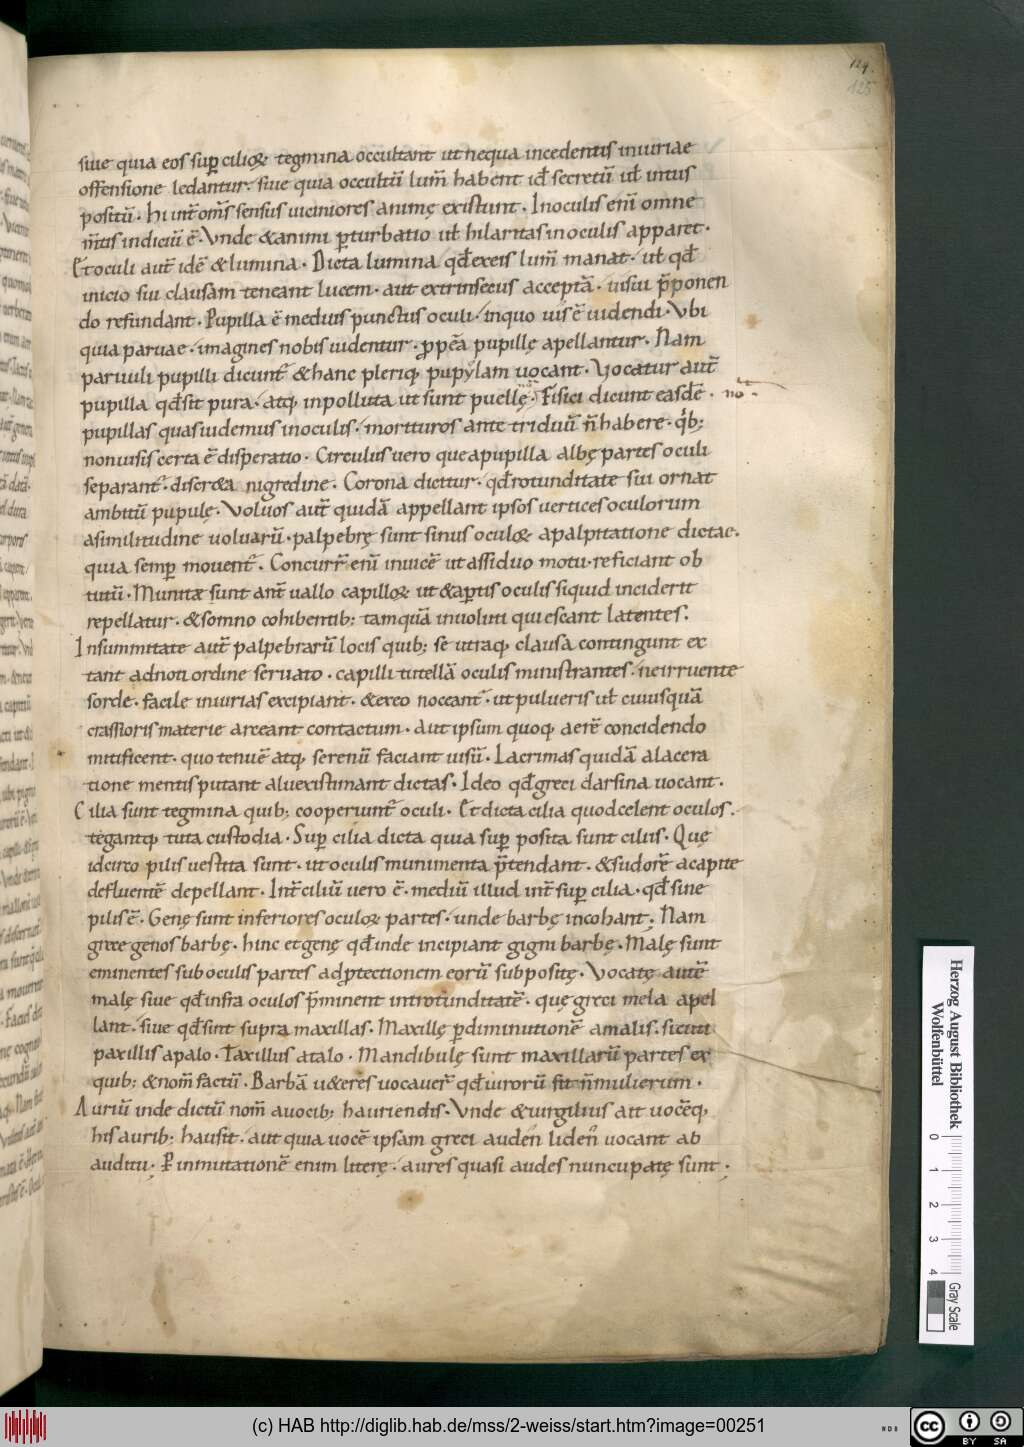 124.
125
siue quia eos sup̱ cilioꝝ tegmina occultant ut nequa incedentis iniuriae
offensione ledantur. siue quia occultū lum̄ habent id̄ secretū ul̄ intus
positū. hi int̄ om̄s sensus uiciniores animę existunt. Inoculis eni̅ omne
m̄tis indiciū ē. Vnde &animi ꝑturbatio ul̄ hilaritas inoculis apparet.
Et oculi aut̄ idē &lumina. Dicta lumina qd̄ exeis lum̄ manat. ul̄ qd̄
inicio sui clausam teneant lucem. aut extrinsecus acceptā. uisui p̄ponen
do refundant. Pupilla ē mediuis punctus oculi. inquo uis ē uidendi. Vbi
quia paruae. imagines nobis uidentur. ꝓpēa pupillę apellantur. Nam
paruuli pupilli dicunt̄ &hanc pleriq; pupylam uocant. Vocatur aut̄
pupilla qd̄ sit pura. atq; inpolluta ut sunt puellę. Fisici dicunt easdē. no
pupillas quas uidemus inoculis. morituros ante triduū n̄ habere. qb;
nonuisis certa ē disperatio. Circulus uero que apupilla albę partes oculi
separant̄. discr&a nigredine. Corona dicitur. qd̄ rotunditate sui ornat
ambitū pupulę. Voluos aut̄ quidā appellant ipsos uertices oculorum
asimilitudine uoluarū. palpebrę sunt sinus oculoꝝ apalpitatione dictae.
quia semꝑ mouent̄. Concurr̄ eni̅ inuicē ut assiduo motu. reficiant ob
tutū. Munitæ sunt aut̄ uallo capilloꝝ ut &aꝑtis oculis siquid inciderit
repellatur. &somno cohibentib; tamquā inuoluti quiescant latentes.
Insummitate aut̄ palpebrarū locis quib; se utraq; clausa contingunt ex
tant adnoti ordine seruato. capilli tutellā oculis ministrantes. neirruente
sorde. facile iniurias excipiant. &exeo noceant̄. ut pulueris ul̄ cuiusquā
crassioris materie arceant contactum. Aut ipsum quoq; aerē concidendo
mitificent. quo tenuē atq; serenū faciant uisū. Lacrimas quidā alacera
tione mentis putant aluexistimant dictas. Ideo qd̄ greci darsina uocant.
Cilia sunt tegmina quib; cooperiunt̄ oculi. Et dicta cilia quodcelent oculos.
tegantq; tuta custodia. Suꝑ cilia dicta quia suꝑ posita sunt ciliis. Quę
idcirco pilis uestita sunt. ut oculis munimenta p̄tendant. &sudorē acapite
defluentē depellant. Int̄ ciliū uero ē. mediū illud int̄ suꝑ cilia. qd̄ sine
pilis ē. Genę sunt inferiores oculoꝝ partes. unde barbę incohant. Nam
grece genos barbę. hinc et genę qd̄ inde incipiant gigni barbę. Malę sunt
eminentes sub oculis partes adꝓtectionem eorū subpositę. Vocatę autē
malę siue qd̄ infra oculos p̄minent introtunditatē. quę greci mela apel
lant. siue qd̄ sint supra maxillas. Maxillę ꝑdiminutionē amalis. sicuti
paxillis apalo. Taxillus atalo. Mandibulę sunt maxillarū partes ex
quib; &nom̄ factū. Barbā u&eres uocauer̄ qd̄ uirorū sit n̄ mulierum.
Auriū inde dictū nom̄ auocib; hauriendis. Vnde &uirgilius ait uocēq;
his aurib; hausit. aut quia uocē ipsam greci auden̄ liden̄ uocant ab
auditu. P inmutationē enim literę. aures quasi audes nuncupatę sunt.
Herzog August Bibliothek
Wolfenbüttel
0 1 2 3 4
Gray Scale
(c) HAB http://diglib.hab.de/mss/2-weiss/start.htm?image=00251
WDB
cc BY SA